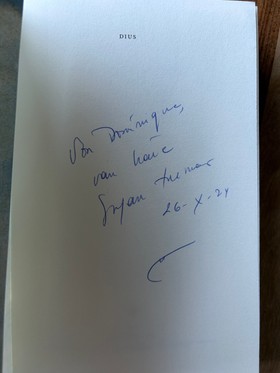 DIUS
Voor Dominique,
van harte
Stefan Hertmans
26-X-24